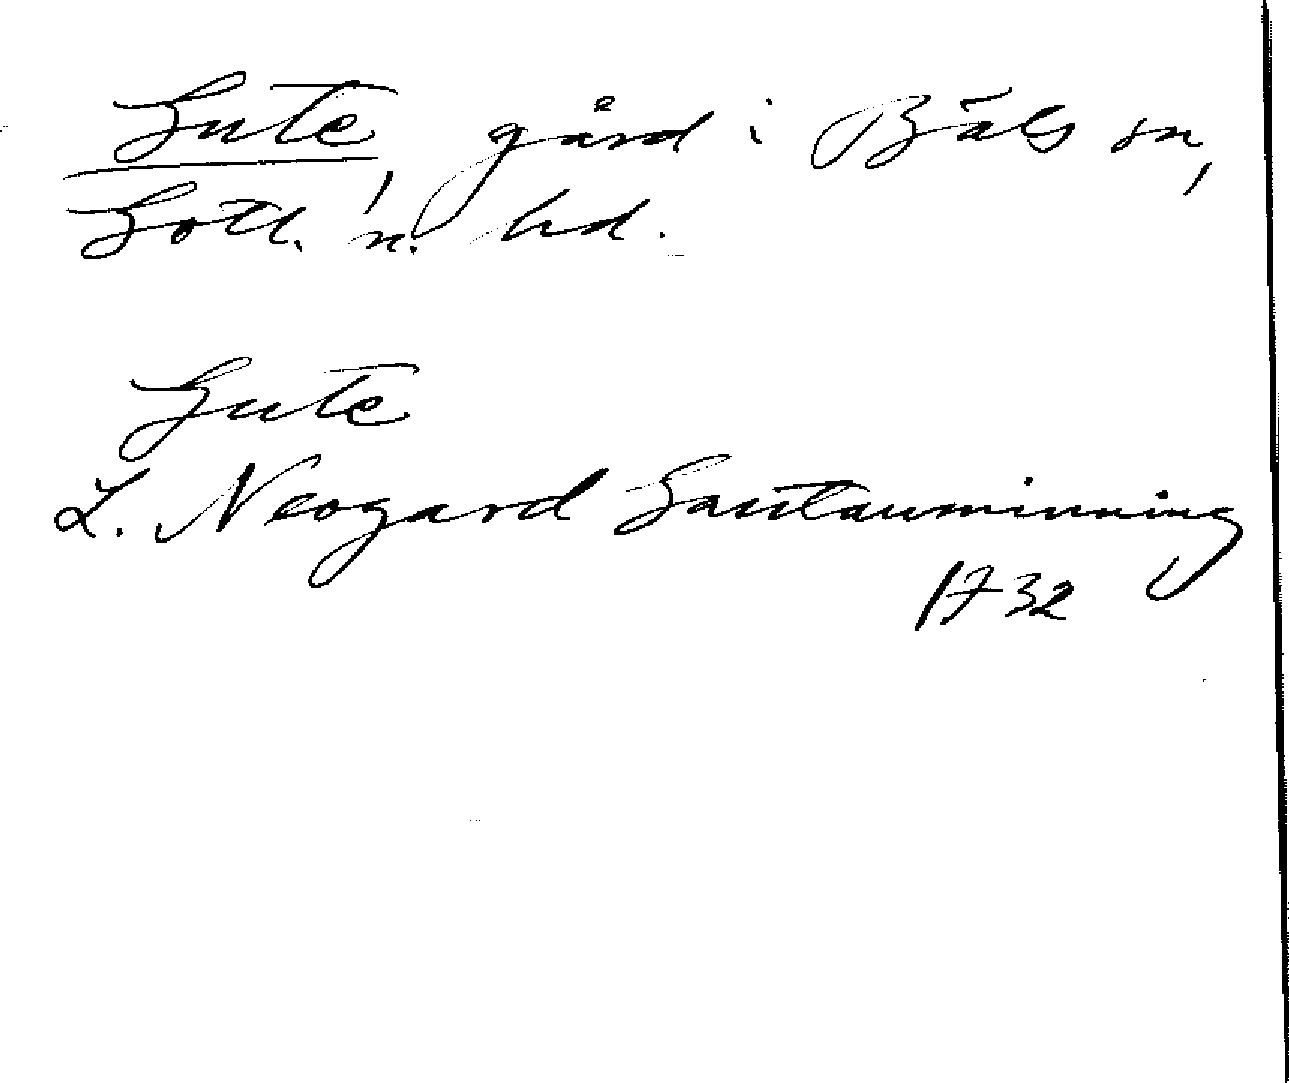 Gute, gård i Bäls sn,
Gotl. n. hd.
Gute
L. Neogard Gautauminning
1732